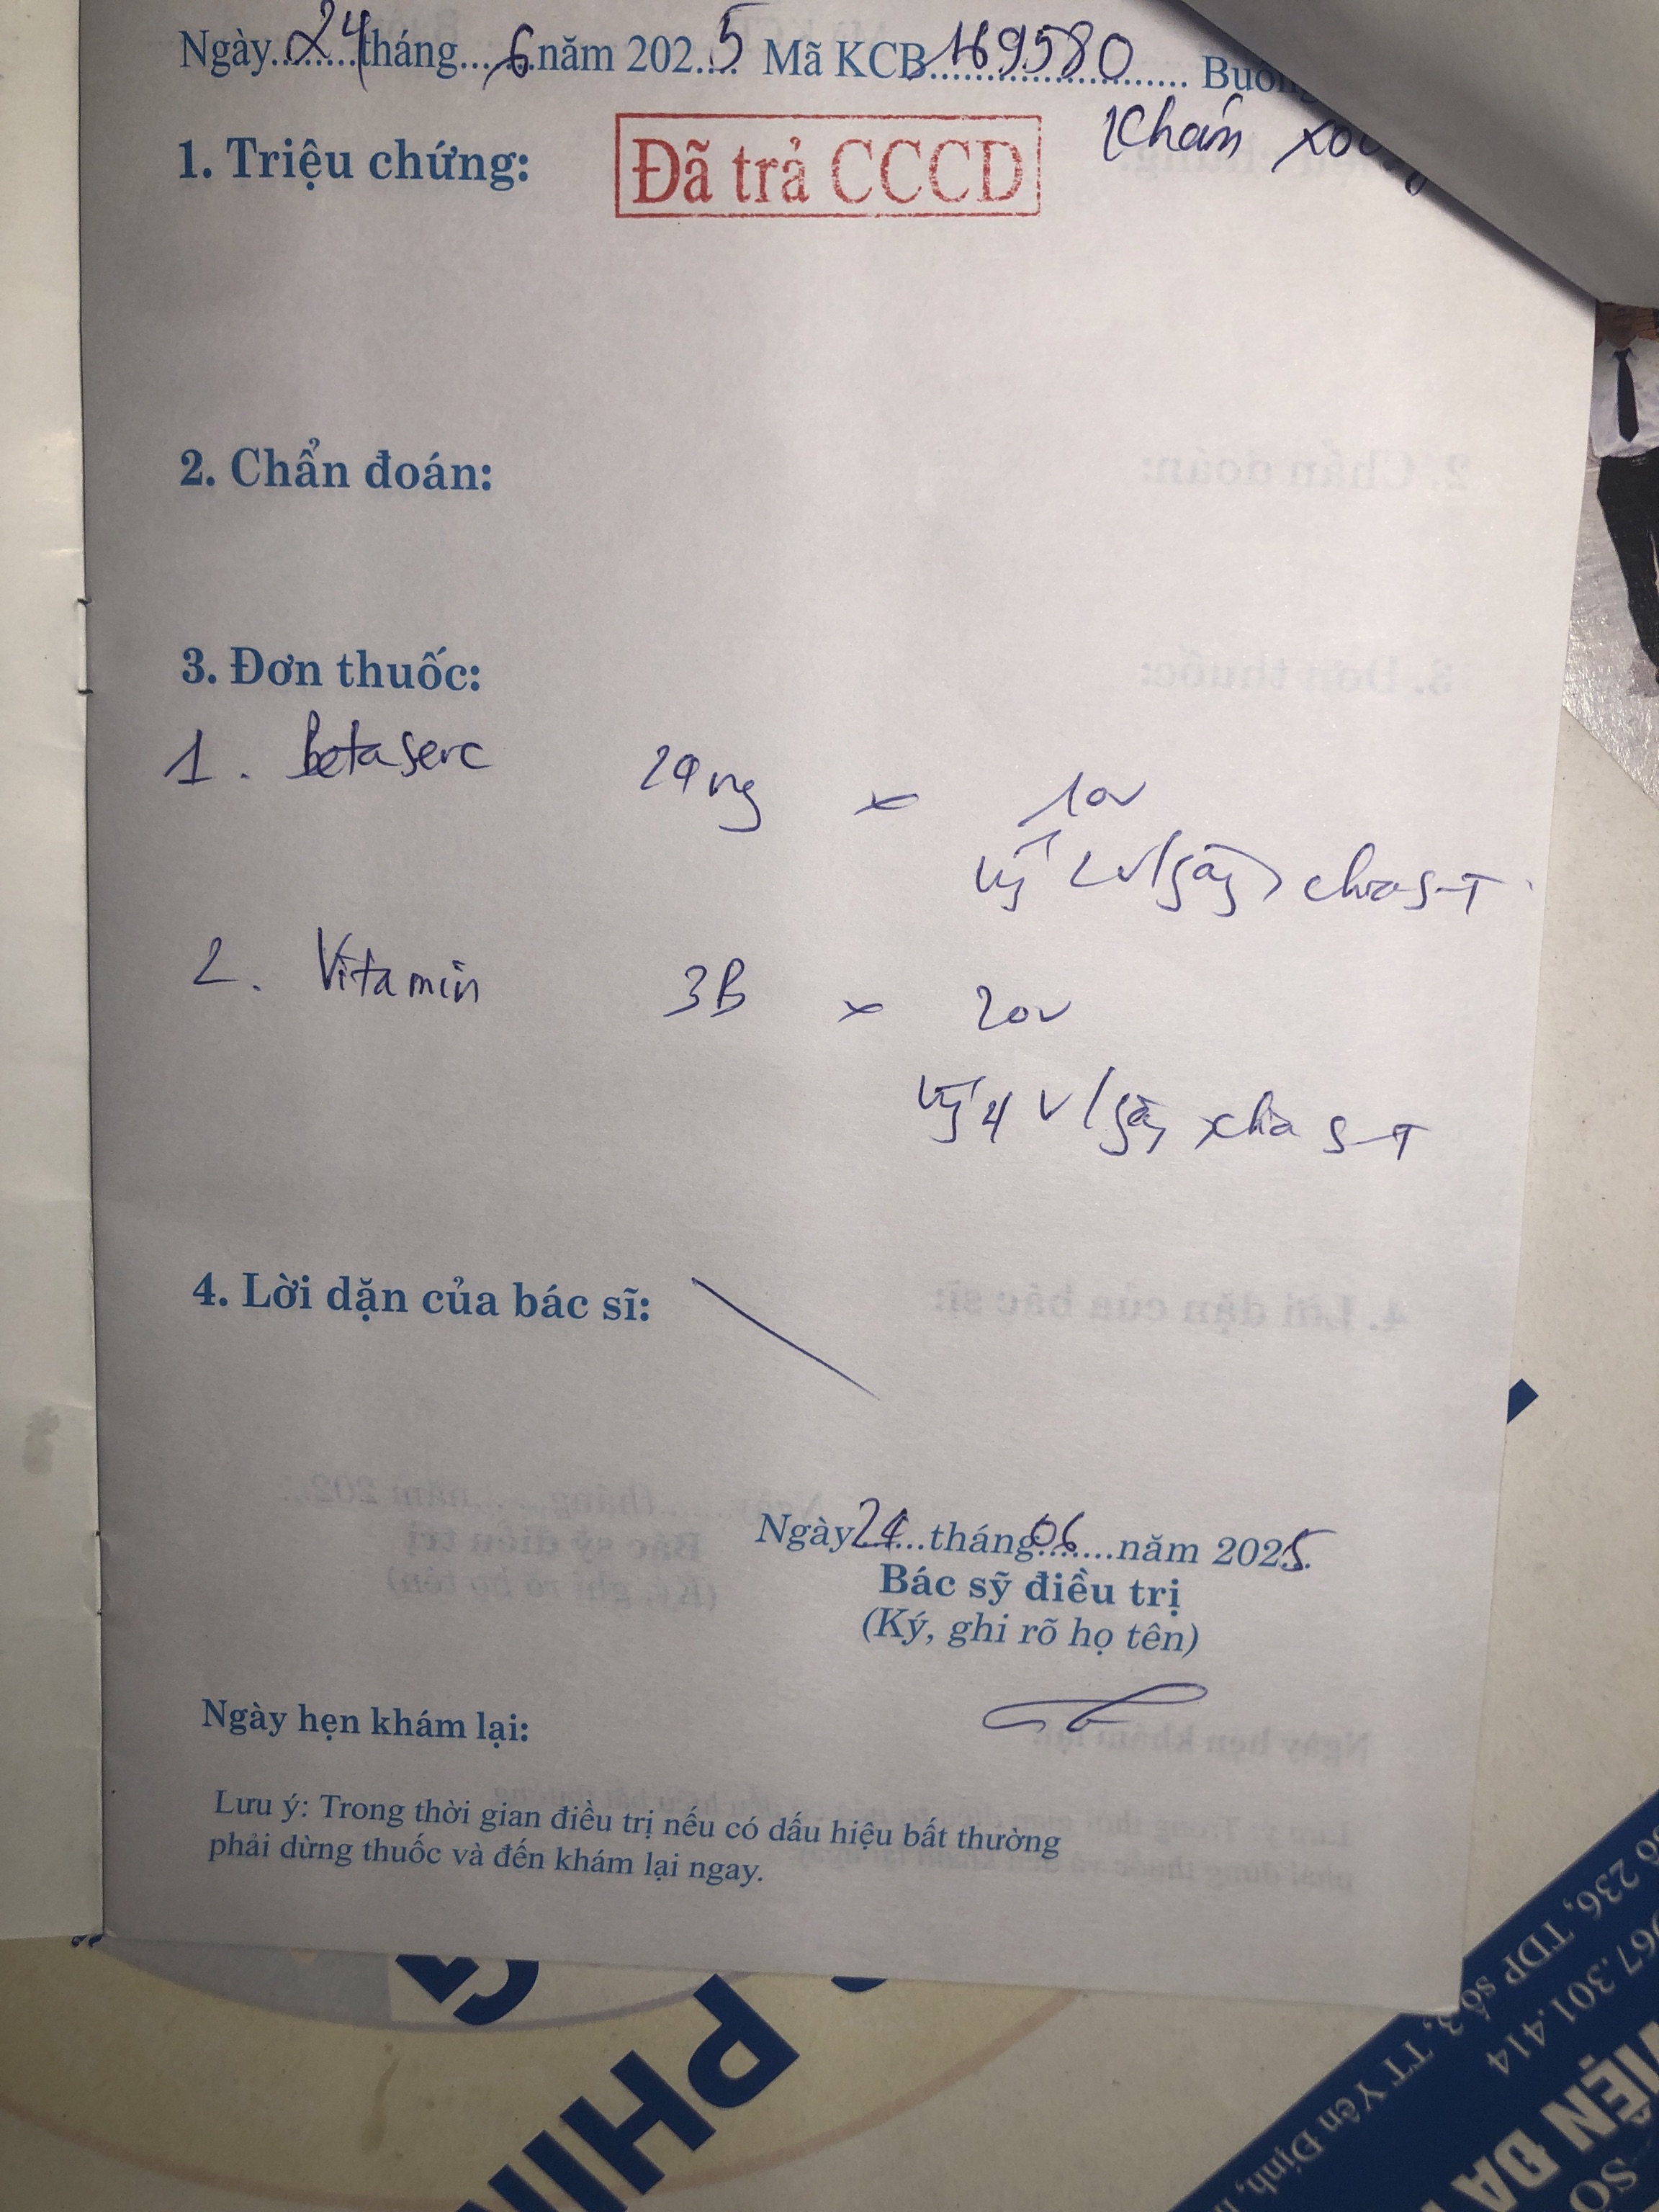 Ngày 24 tháng 6 năm 2025 Mã KCB 169580 Buồng
Khám
1. Triệu chứng:
Đã trả CCCD
2. Chẩn đoán:
3. Đơn thuốc:
1. Betaserc 24mg x 10v
2v/ngày chia S-T
2. Vitamin 3B x 20v
4v/ngày chia S-T
4. Lời dặn của bác sĩ:
Ngày 24 tháng 06 năm 2025
Bác sỹ điều trị
(Ký, ghi rõ họ tên)
Ngày hẹn khám lại:
Lưu ý: Trong thời gian điều trị nếu có dấu hiệu bất thường
phải dừng thuốc và đến khám lại ngay.
236, TDP số 3, TT Yên Định,
67.301.414